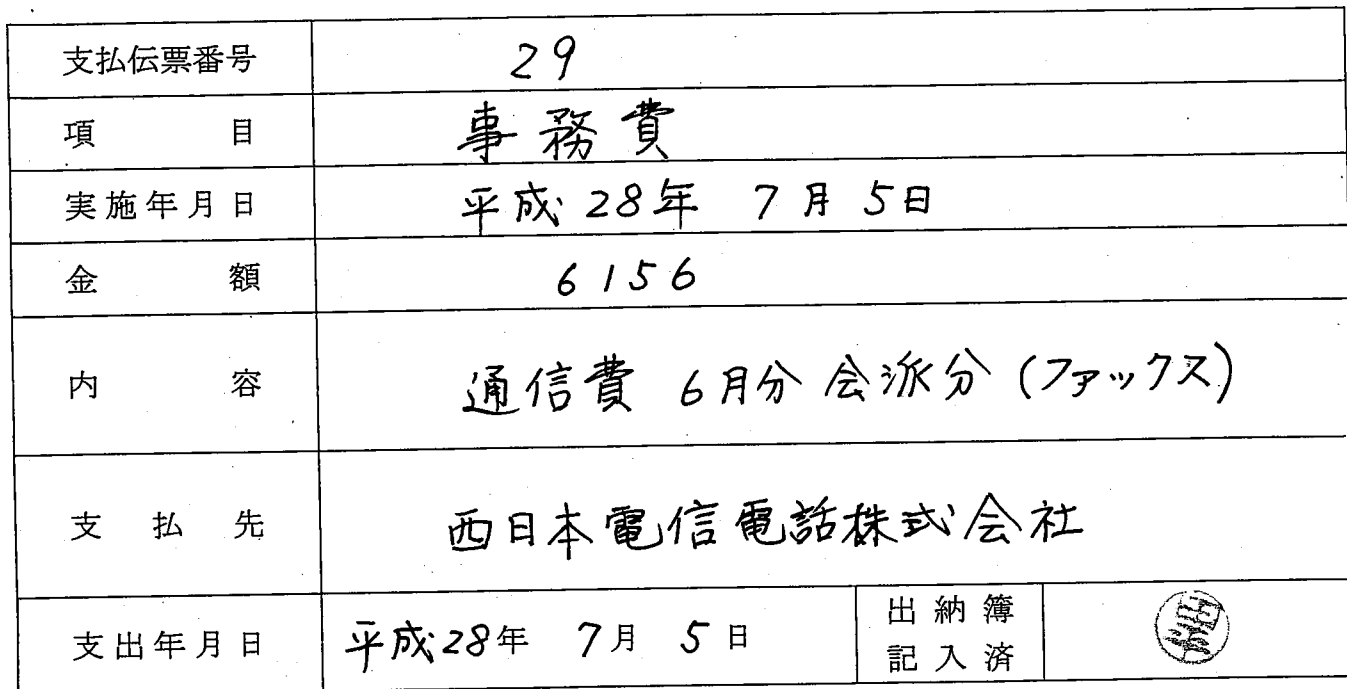 支払伝票番号 29
項目 事務費
実施年月日 平成28年 7月 5日
金額 6156
内容 通信費 6月分 会派分 (ファックス)
支払先 西日本電信電話株式会社
支出年月日 平成28年 7月 5日 出納簿
記入済